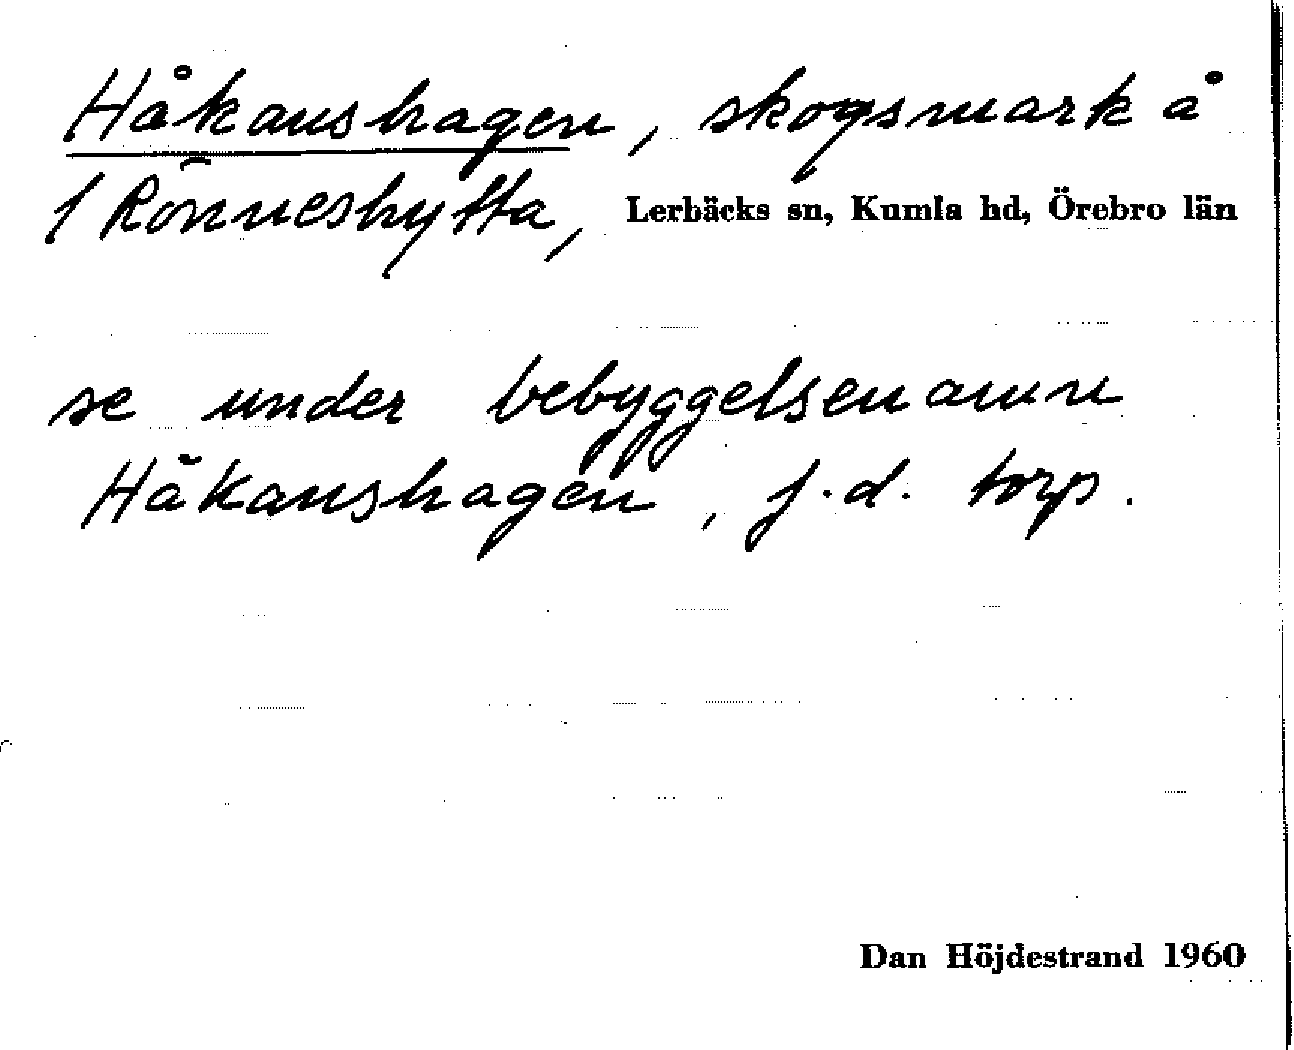 Håkanshagen, skogsmark å
1 Rönneshytta, Lerbäcks sn, Kumla hd, Örebro län
se under bebyggelsenamn
Håkanshagen, f.d. torp.
Dan Höjdestrand 1960